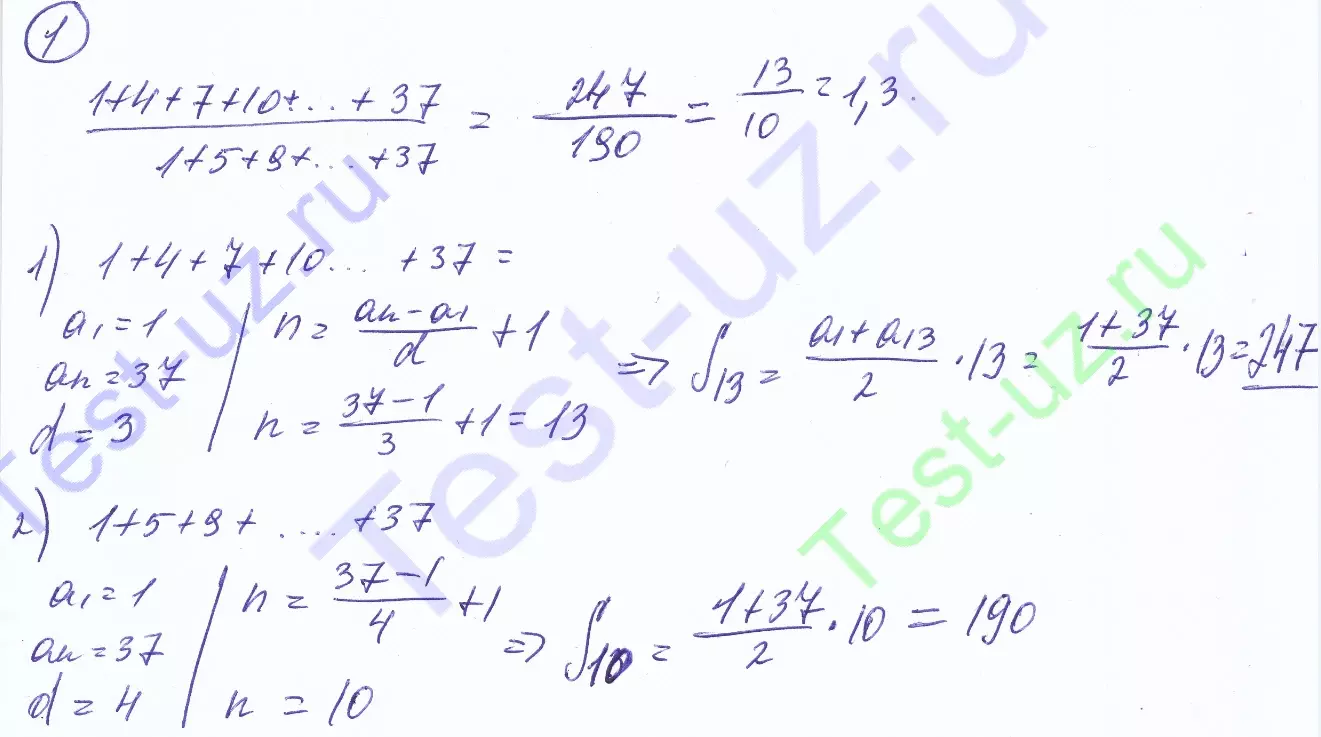 1
(1+4+7+10+...+37)/(1+5+9+...+37) = 247/190 = 13/10 = 1,3.
1) 1+4+7+10... +37 =
a₁ = 1
aₙ = 37
d = 3
n = (aₙ-a₁)/d + 1
n = (37-1)/3 + 1 = 13
=> S₁₃ = (a₁+a₁₃)/2 · 13 = (1+37)/2 · 13 = 247
2) 1+5+9+ .... +37
a₁ = 1
aₙ = 37
d = 4
n = (37-1)/4 + 1
n = 10
=> S₁₀ = (1+37)/2 · 10 = 190
Test-uz.ru
Test-uz.ru
Test-uz.ru